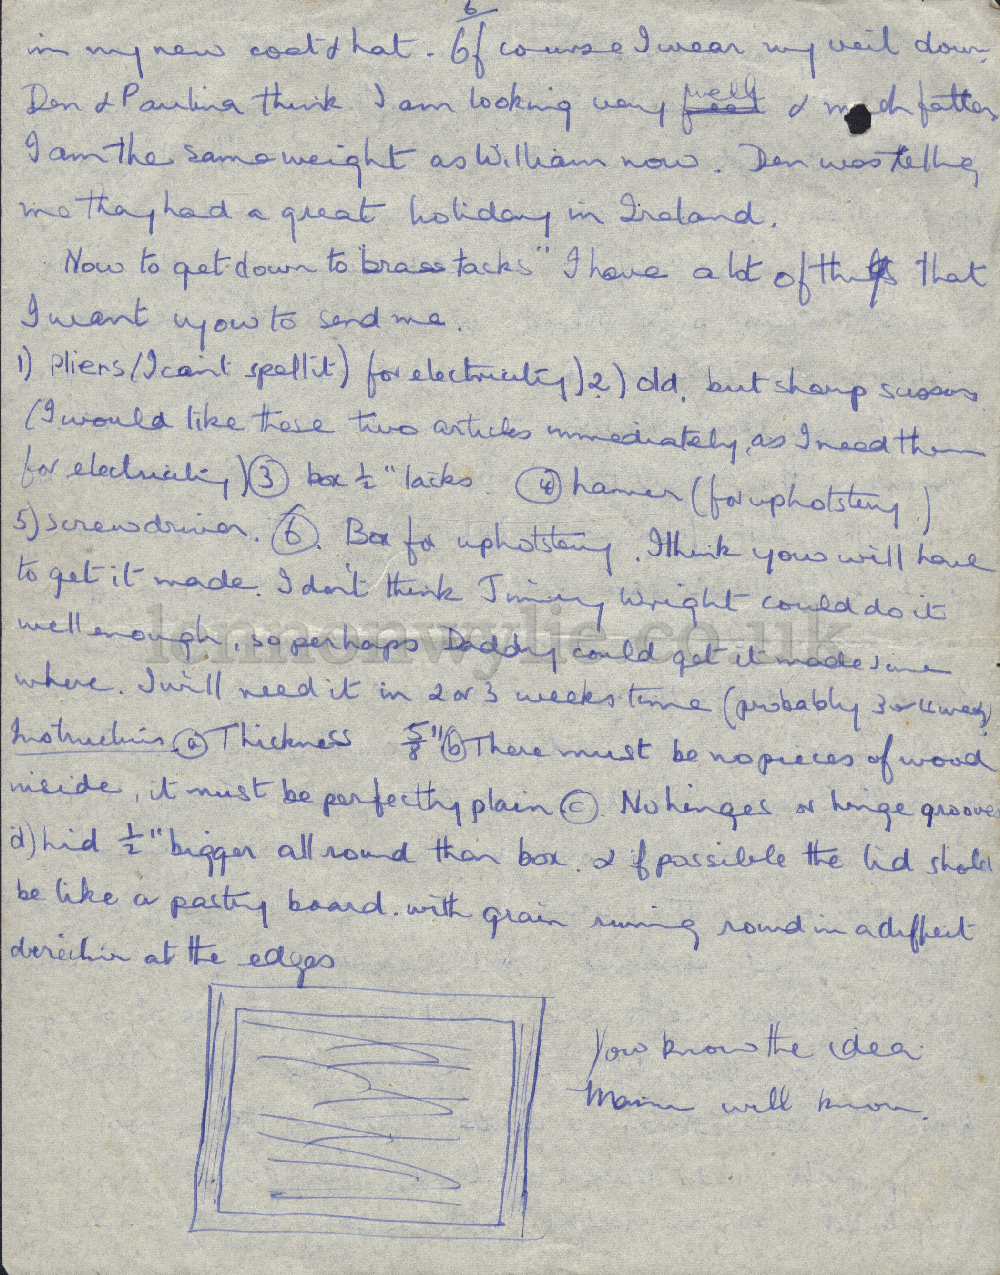 6
in my new coat & hat. Of course I wear my veil down.
Den & Paulina think I am looking very well & much fatter
I am the same weight as William now. Den was telling
me they had a great holiday in Ireland.
Now to get down to brass tacks" I have a lot of things that
I want you to send me.
1) Pliers (I can't spell it) for electricity) 2) old, but sharp scissors
(I would like these two articles immediately, as I need them
for electricity) 3 box ½" tacks 4 hammer (for upholstery)
5) screwdriver. 6. Box for upholstery. I think you will have
to get it made. I don't think Jimmy Wright could do it
well enough, so perhaps Daddy could get it made some
where. I will need it in 2 or 3 weeks time (probably 3 or 4 weeks)
Instructions a Thickness 5/8" b There must be no pieces of wood
inside, it must be perfectly plain c. No hinges or hinge grooves
d) Lid ½" bigger all round than box. & if possible the lid should
be like a pastry board. with grain running round in a different
direction at the edges
You know the idea
will know.
lennonwylie.co.uk